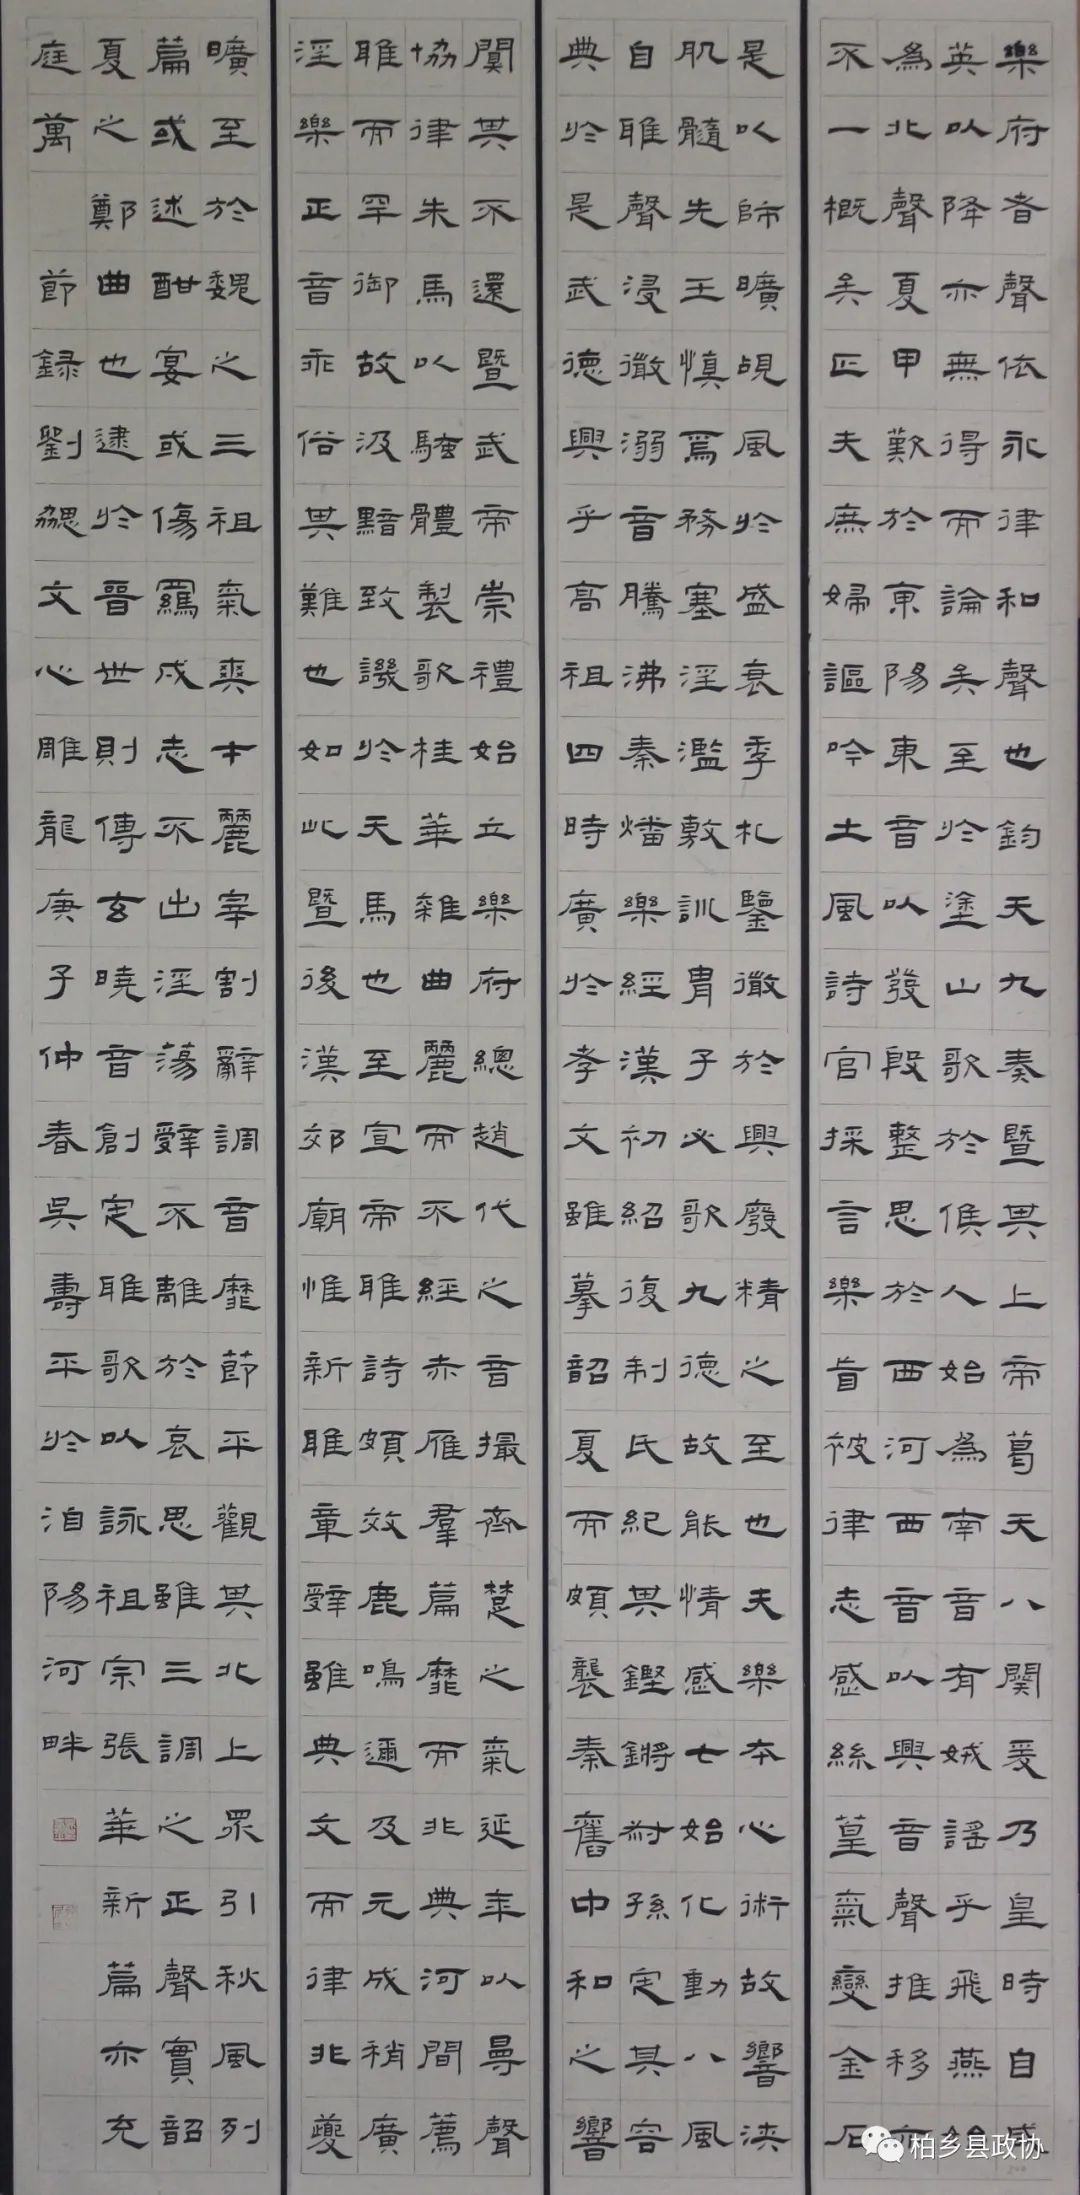 樂府者聲依永律和聲也鈞天九奏暨其上帝葛天八闋爰乃皇時自咸
英以降亦無得而論矣至於塗山歌於候人始為南音有娀謠乎飛燕始
為北聲夏甲歎於東陽東音以發段整思於西河西音以興音聲推移亦
不一概矣匹夫庶婦謳吟土風詩官採言樂盲被律志感絲篁氣變金石
是以師曠覘風於盛衰季札鑒微於興廢精之至也夫樂本心術故響浹
肌髓先王慎焉務塞淫濫敷訓胄子必歌九德故能情感七始化動八風
自雅聲浸微溺音騰沸秦燔樂經漢初紹復制氏紀其鏗鏘叔孫定其容
典於是武德興乎高祖四時廣於孝文雖摹韶夏而頗襲秦舊中和之響
闃其不還暨武帝崇禮始立樂府總趙代之音撮齊楚之氣延年以曼聲
協律朱馬以騷體製歌桂華雜曲麗而不經赤雁羣篇靡而非典河間薦
雅而罕御故汲黯致譏於天馬也至宣帝雅詩頗效鹿鳴邇及元成稍廣
淫樂正音乖俗其難也如此暨後漢郊廟惟新雅章辭雖典文而律非夔
曠至於魏之三祖氣爽才麗宰割辭調音靡節平觀其北上眾引秋風列
篇或述酣宴或傷羈戍志不出淫蕩辭不離於哀思雖三調之正聲實韶
夏之鄭曲也逮於晉世則傅玄曉音創定雅歌以詠祖宗張華新篇亦充
庭萬 節録劉勰文心雕龍庚子仲春吳壽平於洎陽河畔
柏乡县政协